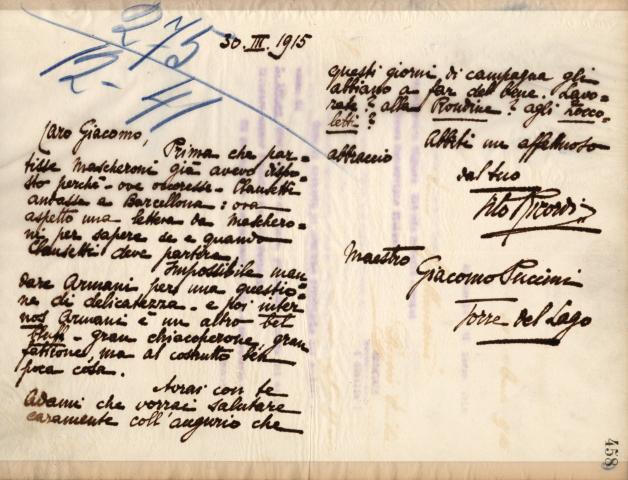 275
12-41
30. III. 1915
Caro Giacomo,
Prima che par-
tisse Mascheroni già avevo dispo-
sto perchè - ove occoresse - Clausetti
andasse a Barcellona: ora
aspetto una lettera da Maschero-
ni per sapere se e quando
Clausetti deve partire.
Impossibile man
dare Armani per una questio-
ne di delicatezza - e poi inter
nos Armani è un altro bel
bluff - gran chiacoperone, gran
faticone, ma al costrutto ben
poca cosa.
Avrai con te
Adami che vorrai salutare
caramente coll'augurio che
questi giorni di campagna gli
abbiano a far del bene. Lavo-
rate? alla Rondine? agli Zocco-
letti?
Abbiti un affettuoso
abbraccio
dal tuo
Tito Ricordi
Maestro
Giacomo Puccini
Torre del Lago
458